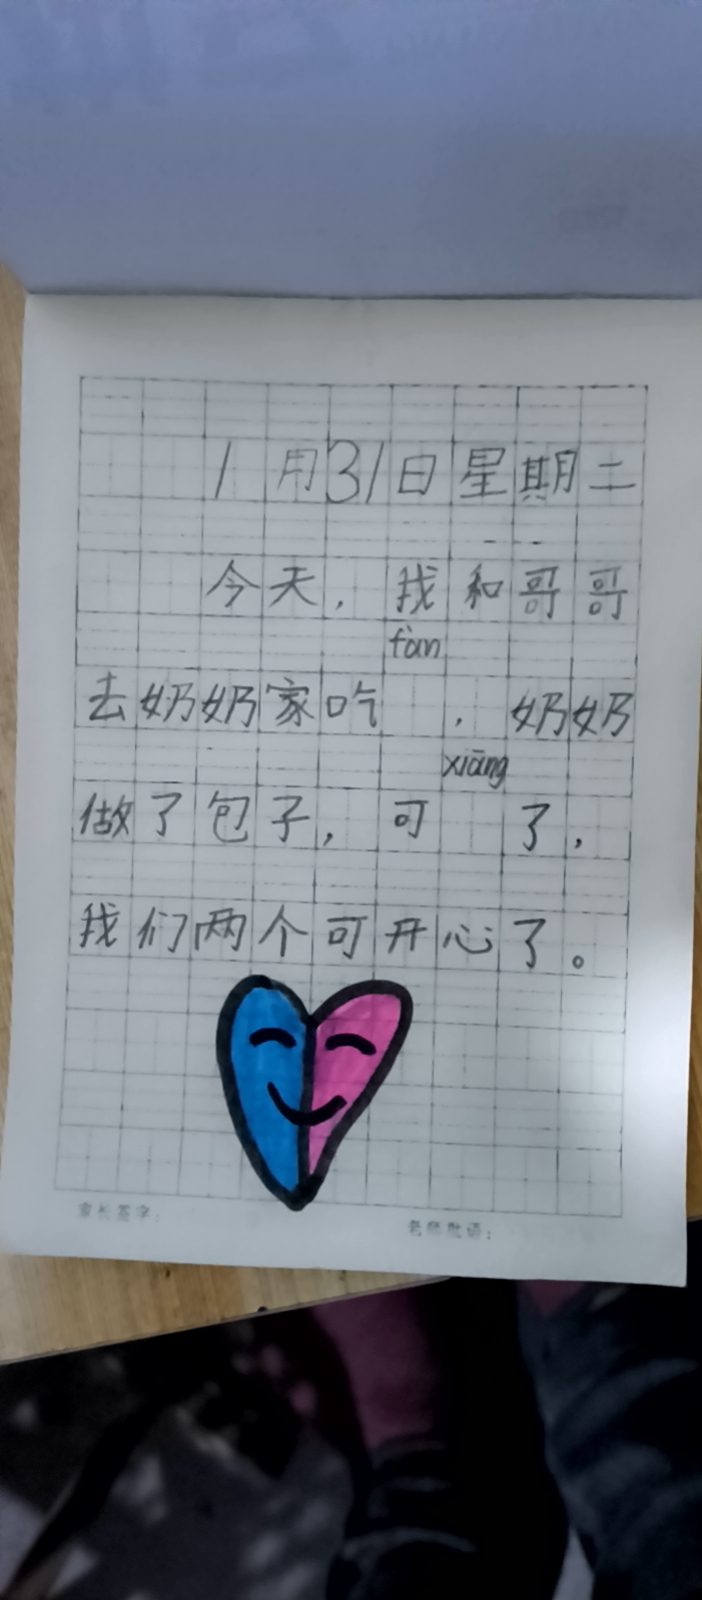 1月31日星期二
今天，我和哥哥
fàn
去奶奶家吃 ，奶奶
xiāng
做了包子，可 了，
我们两个可开心了。
家长签字： 老师批语：